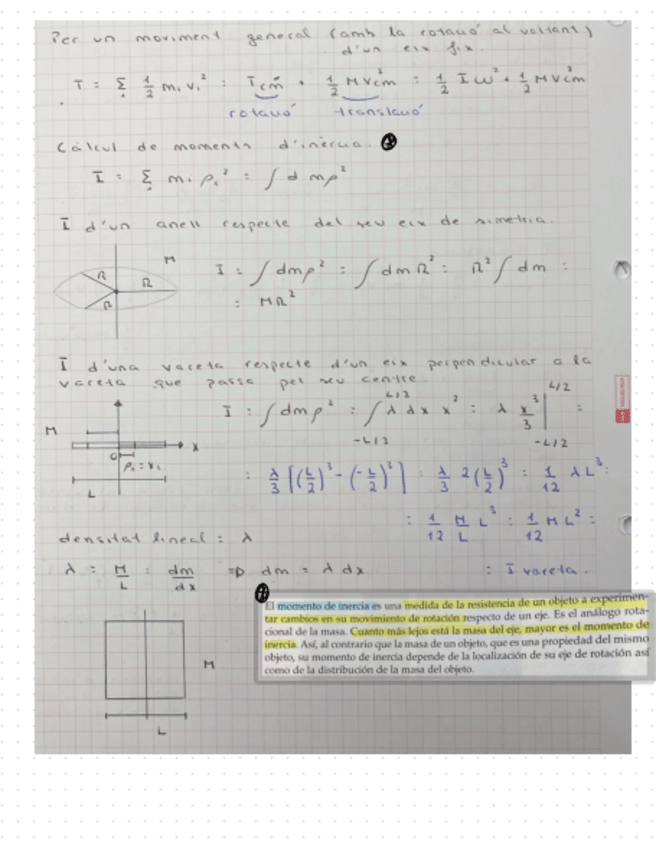 Per un moviment general (amb la rotació al voltant
d'un eix fix.
T = Σ 1/2 mᵢ vᵢ² = T cm + 1/2 M v²cm = 1/2 I ω² + 1/2 M v²cm
rotació translació
Càlcul de moments d'inèrcia.
I = Σ mᵢ ρᵢ² = ∫ d m ρ²
I d'un anell respecte del seu eix de simetria.
M
R R
R
I = ∫ dm ρ² = ∫ dm R² = R² ∫ dm =
= MR²
I d'una vareta respecte d'un eix perpendicular a la
vareta que passa pel seu centre.
I = ∫ dm ρ² = ∫ λ dx x² = λ x³/3 | =
L/2 L/2
-L/2 -L/2
M
x
O
ρᵢ = xᵢ
L
= λ/3 [(L/2)³ - (-L/2)³] = λ/3 2 (L/2)³ = 1/12 λ L³ =
= 1/12 M/L L³ = 1/12 M L² =
densitat lineal = λ
λ = M/L = dm/dx => dm = λ dx
= I vareta.
El momento de inercia es una medida de la resistencia de un objeto a experimen-
tar cambios en su movimiento de rotación respecto de un eje. Es el análogo rota-
cional de la masa. Cuanto más lejos está la masa del eje, mayor es el momento de
inercia. Así, al contrario que la masa de un objeto, que es una propiedad del mismo
objeto, su momento de inercia depende de la localización de su eje de rotación así
como de la distribución de la masa del objeto.
M
L